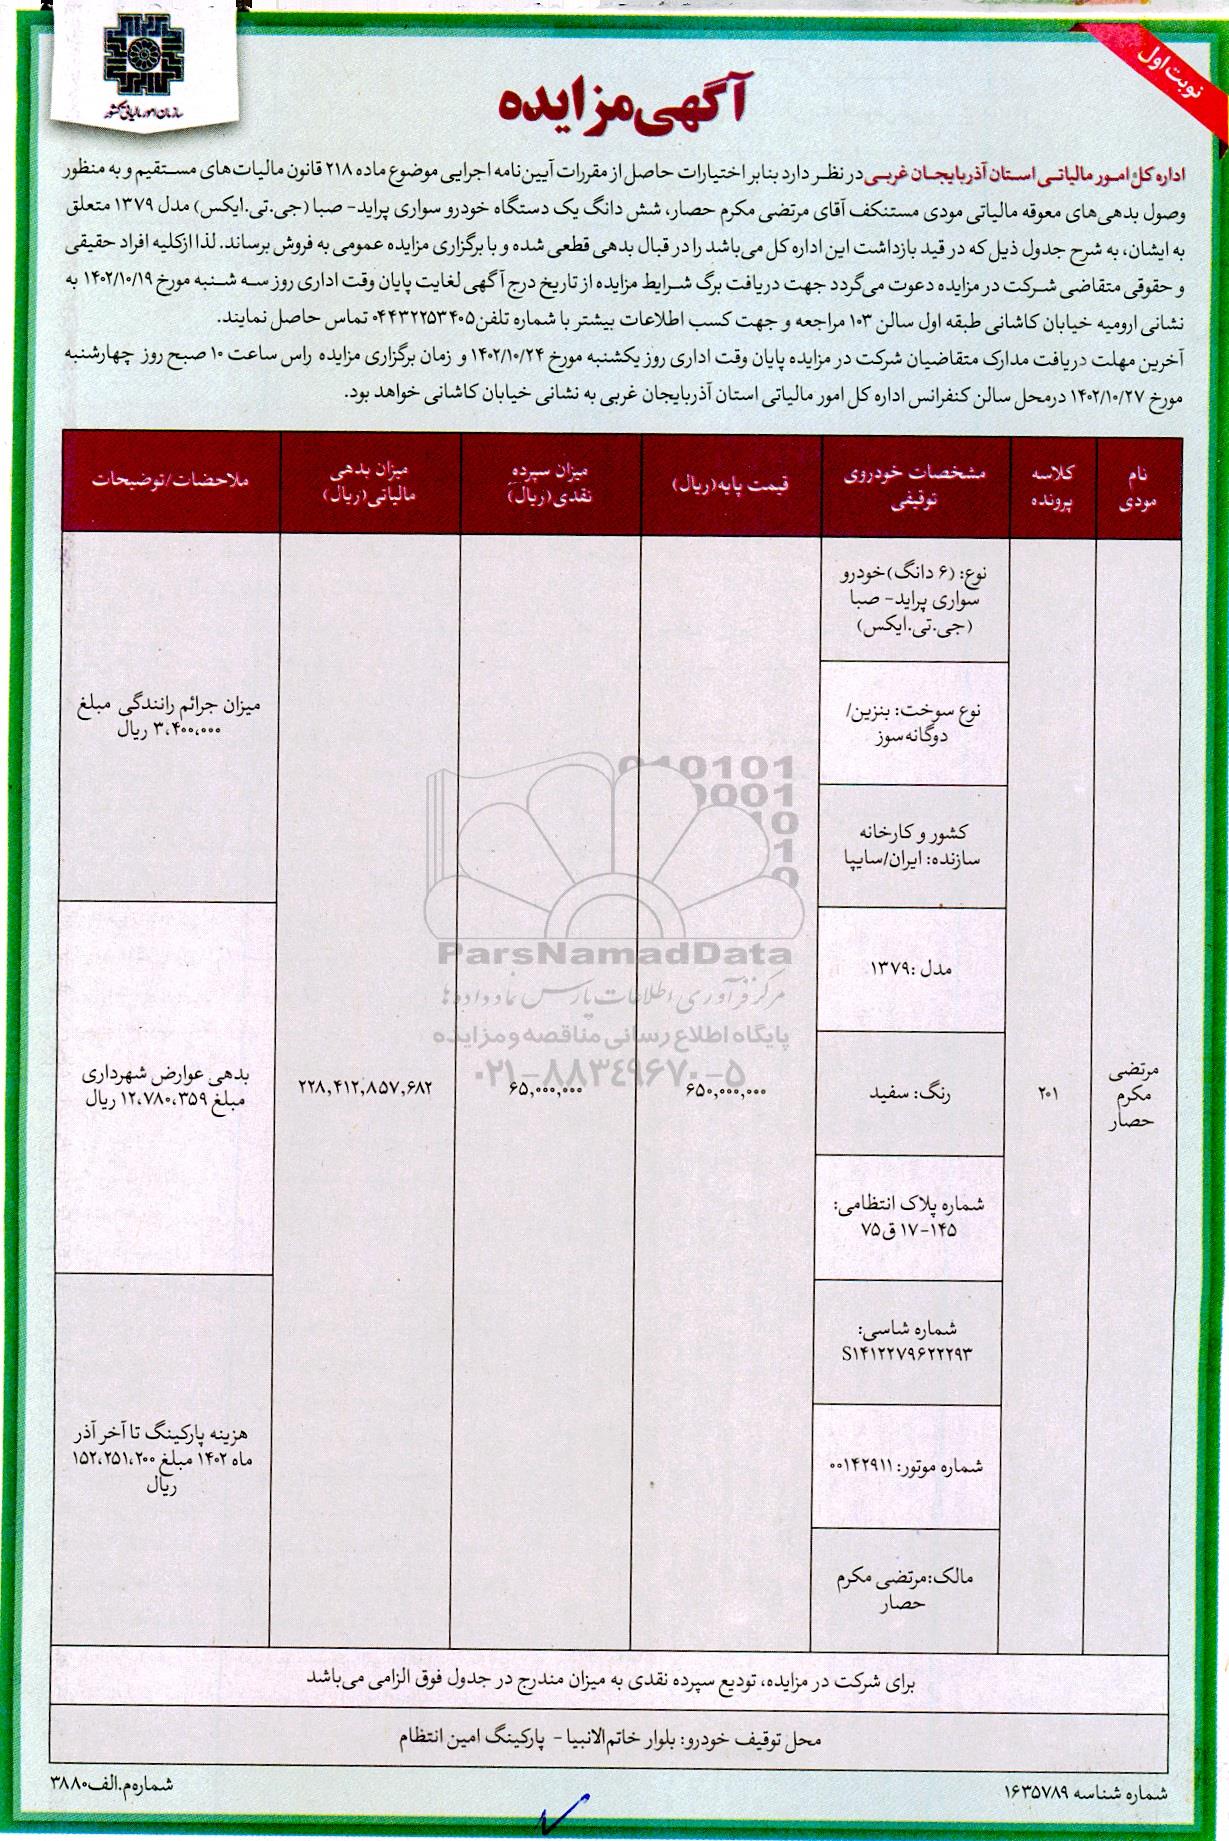 سازمان امور مالیاتی کشور
نوبت اول
آگهی مزایده
اداره کل امور مالیاتی استان آذربایجان غربی در نظر دارد بنابر اختیارات حاصل از مقررات آیین‌نامه اجرایی موضوع ماده ۲۱۸ قانون مالیات‌های مستقیم و به منظور
وصول بدهی‌های معوقه مالیاتی مودی مستنکف آقای مرتضی مکرم حصار، شش دانگ یک دستگاه خودرو سواری پراید- صبا (جی.تی.ایکس) مدل ۱۳۷۹ متعلق
به ایشان، به شرح جدول ذیل که در قید بازداشت این اداره کل می‌باشد را در قبال بدهی قطعی شده و با برگزاری مزایده عمومی به فروش برساند. لذا ازکلیه افراد حقیقی
و حقوقی متقاضی شرکت در مزایده دعوت می‌گردد جهت دریافت برگ شرایط مزایده از تاریخ درج آگهی لغایت پایان وقت اداری روز سه شنبه مورخ ۱۴۰۲/۱۰/۱۹ به
نشانی ارومیه خیابان کاشانی طبقه اول سالن ۱۰۳ مراجعه و جهت کسب اطلاعات بیشتر با شماره تلفن ۰۴۴۳۲۲۵۳۴۰۵ تماس حاصل نمایند.
آخرین مهلت دریافت مدارک متقاضیان شرکت در مزایده پایان وقت اداری روز یکشنبه مورخ ۱۴۰۲/۱۰/۲۴ و زمان برگزاری مزایده راس ساعت ۱۰ صبح روز چهارشنبه
مورخ ۱۴۰۲/۱۰/۲۷ درمحل سالن کنفرانس اداره کل امور مالیاتی استان آذربایجان غربی به نشانی خیابان کاشانی خواهد بود.
نام
مودی
کلاسه
پرونده
مشخصات خودروی
توقیفی
قیمت پایه(ریال)
میزان سپرده
نقدی(ریال)
میزان بدهی
مالیاتی(ریال)
ملاحضات/توضیحات
مرتضی
مکرم
حصار
۲۰۱
نوع: (۶ دانگ)خودرو
سواری پراید- صبا
(جی.تی.ایکس)
نوع سوخت: بنزین/
دوگانه‌سوز
کشور و کارخانه
سازنده: ایران/سایپا
مدل :۱۳۷۹
رنگ: سفید
شماره پلاک انتظامی:
۱۴۵-۱۷ ق۷۵
شماره شاسی:
S۱۴۱۲۲۷۹۶۲۲۲۹۳
شماره موتور: ۰۰۱۴۲۹۱۱
مالک:مرتضی مکرم
حصار
۶۵۰,۰۰۰,۰۰۰
۶۵,۰۰۰,۰۰۰
۲۲۸,۴۱۲,۸۵۷,۶۸۲
میزان جرائم رانندگی مبلغ
۳،۴۰۰،۰۰۰ ریال
بدهی عوارض شهرداری
مبلغ ۱۲،۷۸۰،۳۵۹ ریال
هزینه پارکینگ تا آخر آذر
ماه ۱۴۰۲ مبلغ ۱۵۲،۲۵۱،۲۰۰
ریال
010101
0001
10
1
0
ParsNamadData
مرکز فرآوری اطلاعات پارس نماد داده‌ها
پایگاه اطلاع رسانی مناقصه و مزایده
۰۲۱-۸۸۳۴۹۶۷۰-۵
برای شرکت در مزایده، تودیع سپرده نقدی به میزان مندرج در جدول فوق الزامی می‌باشد
محل توقیف خودرو: بلوار خاتم‌الانبیا - پارکینگ امین انتظام
شماره شناسه ۱۶۳۵۷۸۹
شماره‌م.الف۳۸۸۰